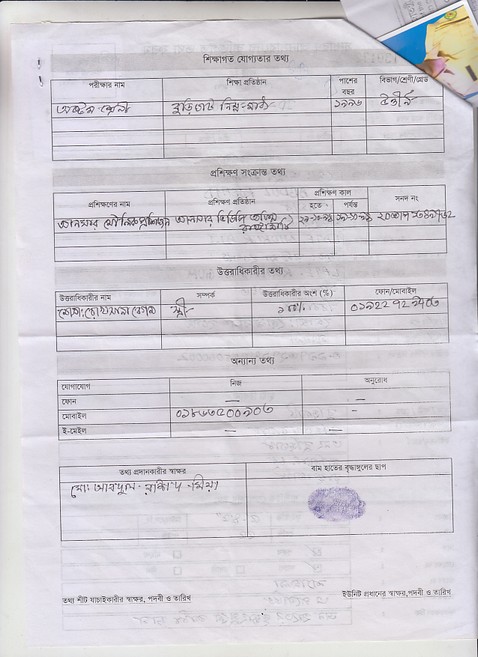 শিক্ষাগত যোগ্যতার তথ্য
পরীক্ষার নাম শিক্ষা প্রতিষ্ঠান পাশের বছর বিভাগ/শ্রেণী/গ্রেড
অষ্টম শ্রেণী ১৯৯৬ উত্তীর্ণ
প্রশিক্ষণ সংক্রান্ত তথ্য
প্রশিক্ষণের নাম প্রশিক্ষণ প্রতিষ্ঠান প্রশিক্ষণ কাল সনদ নং
হতে পর্যন্ত
আনসার মৌলিক প্রশিক্ষণ আনসার ভিডিপি
উত্তরাধিকারীর তথ্য
উত্তরাধিকারীর নাম সম্পর্ক উত্তরাধিকারীর অংশ (%) ফোন/মোবাইল
বেগম স্ত্রী ১০০%
অন্যান্য তথ্য
যোগাযোগ নিজ অনুরোধ
ফোন — —
মোবাইল –
ই-মেইল — –
তথ্য প্রদানকারীর স্বাক্ষর বাম হাতের বৃদ্ধাঙ্গুলের ছাপ
মো: আবদুল মিয়া
তথ্য শীট যাচাইকারীর স্বাক্ষর, পদবী ও তারিখ ইউনিট প্রধানের স্বাক্ষর,পদবী ও তারিখ